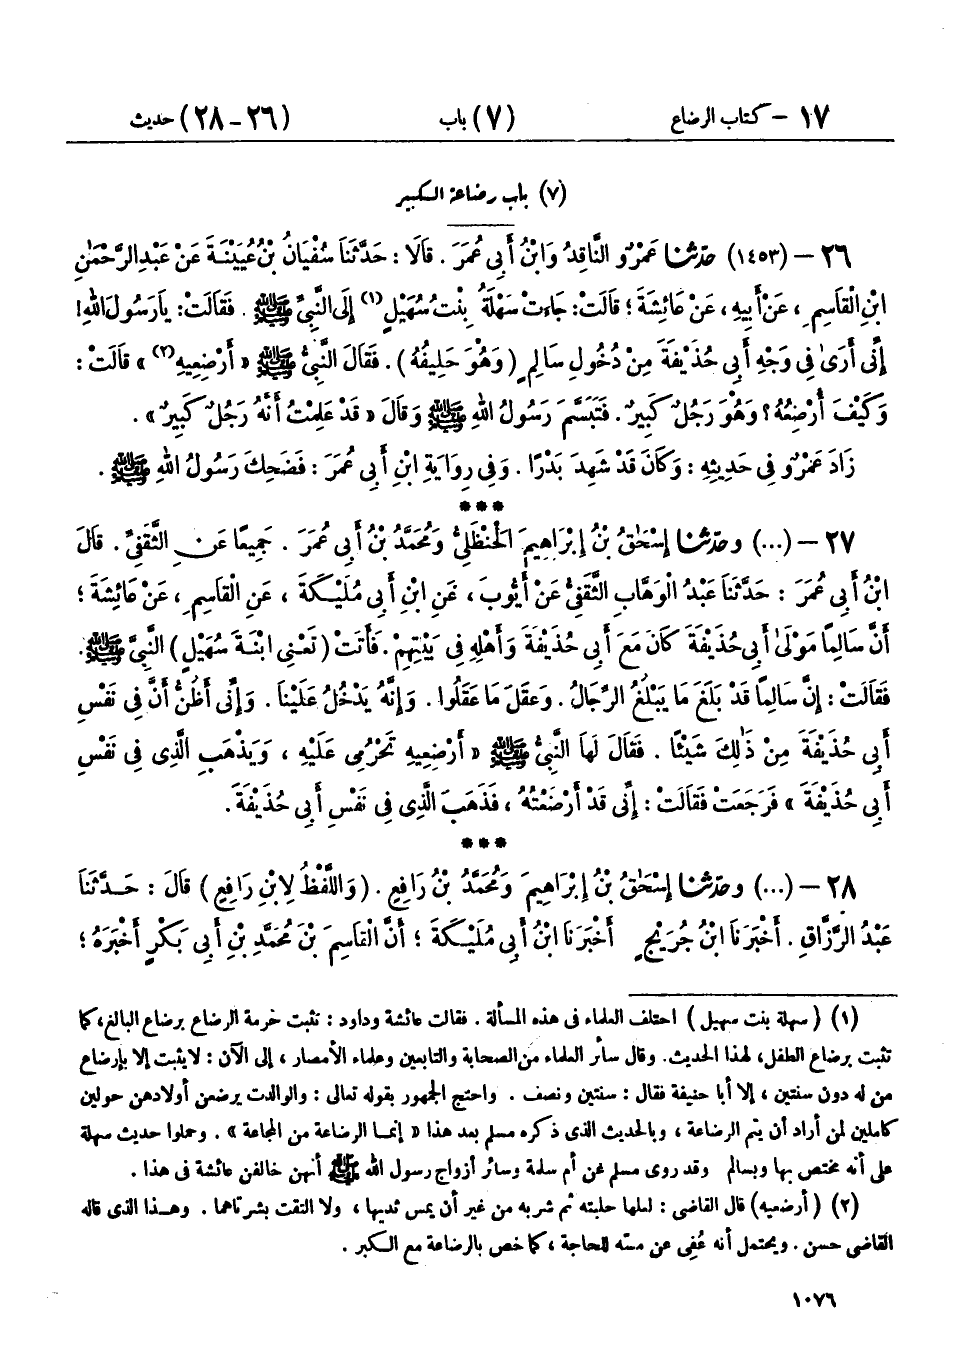 ١٧ – كتاب الرضاع (٧) باب (٢٦ – ٢٨) حديث
(٧) باب رضاعة الكبير
٢٦ – (١٤٥٣) حَدَّثَنَا عَمْرٌو النَّاقِدُ وَابْنُ أَبِي عُمَرَ . قَالَا : حَدَّثَنَا سُفْيَانُ بْنُ عُيَيْنَةَ عَنْ عَبْدِ الرَّحْمَٰنِ
ابْنِ الْقَاسِمِ ، عَنْ أَبِيهِ ، عَنْ عَائِشَةَ ؛ قَالَتْ : جَاءَتْ سَهْلَةُ بِنْتُ سُهَيْلٍ (١) إِلَى النَّبِيِّ ﷺ . فَقَالَتْ : يَا رَسُولَ اللهِ !
إِنِّي أَرَىٰ فِي وَجْهِ أَبِي حُذَيْفَةَ مِنْ دُخُولِ سَالِمٍ ( وَهُوَ حَلِيفُهُ ) . فَقَالَ النَّبِيُّ ﷺ « أَرْضِعِيهِ (٢) » قَالَتْ :
وَكَيْفَ أُرْضِعُهُ ؟ وَهُوَ رَجُلٌ كَبِيرٌ . فَتَبَسَّمَ رَسُولُ اللهِ ﷺ وَقَالَ « قَدْ عَلِمْتُ أَنَّهُ رَجُلٌ كَبِيرٌ » .
زَادَ عَمْرٌو فِي حَدِيثِهِ : وَكَانَ قَدْ شَهِدَ بَدْرًا . وَفِي رِوَايَةِ ابْنِ أَبِي عُمَرَ : فَضَحِكَ رَسُولُ اللهِ ﷺ .
***
٢٧ – (...) وحَدَّثَنَا إِسْحَٰقُ بْنُ إِبْرَاهِيمَ الْحَنْظَلِيُّ وَمُحَمَّدُ بْنُ أَبِي عُمَرَ . جَمِيعًا عَنِ الثَّقَفِيِّ . قَالَ
ابْنُ أَبِي عُمَرَ : حَدَّثَنَا عَبْدُ الْوَهَّابِ الثَّقَفِيُّ عَنْ أَيُّوبَ ، عَنِ ابْنِ أَبِي مُلَيْكَةَ ، عَنِ الْقَاسِمِ ، عَنْ عَائِشَةَ ؛
أَنَّ سَالِمًا مَوْلَىٰ أَبِي حُذَيْفَةَ كَانَ مَعَ أَبِي حُذَيْفَةَ وَأَهْلِهِ فِي بَيْتِهِمْ . فَأَتَتْ ( تَعْنِي ابْنَةَ سُهَيْلٍ ) النَّبِيَّ ﷺ .
فَقَالَتْ : إِنَّ سَالِمًا قَدْ بَلَغَ مَا يَبْلُغُ الرِّجَالُ . وَعَقَلَ مَا عَقَلُوا . وَإِنَّهُ يَدْخُلُ عَلَيْنَا . وَإِنِّي أَظُنُّ أَنَّ فِي نَفْسِ
أَبِي حُذَيْفَةَ مِنْ ذَٰلِكَ شَيْئًا . فَقَالَ لَهَا النَّبِيُّ ﷺ « أَرْضِعِيهِ تَحْرُمِي عَلَيْهِ ، وَيَذْهَبِ الَّذِي فِي نَفْسِ
أَبِي حُذَيْفَةَ » فَرَجَعَتْ فَقَالَتْ : إِنِّي قَدْ أَرْضَعْتُهُ ، فَذَهَبَ الَّذِي فِي نَفْسِ أَبِي حُذَيْفَةَ .
***
٢٨ – (...) وحَدَّثَنَا إِسْحَٰقُ بْنُ إِبْرَاهِيمَ وَمُحَمَّدُ بْنُ رَافِعٍ . ( وَاللَّفْظُ لِابْنِ رَافِعٍ ) قَالَ : حَدَّثَنَا
عَبْدُ الرَّزَّاقِ . أَخْبَرَنَا ابْنُ جُرَيْجٍ أَخْبَرَنَا ابْنُ أَبِي مُلَيْكَةَ ؛ أَنَّ الْقَاسِمَ بْنَ مُحَمَّدِ بْنِ أَبِي بَكْرٍ أَخْبَرَهُ ؛
(١) ( سهلة بنت سهيل ) اختلف العلماء فى هذه المسألة . فقالت عائشة وداود : تثبت حرمة الرضاع برضاع البالغ ، كما
تثبت برضاع الطفل ، لهذا الحديث . وقال سائر العلماء من الصحابة والتابعين وعلماء الأمصار ، إلى الآن : لايثبت إلا بإرضاع
من له دون سنتين ، إلا أبا حنيفة فقال : سنتين ونصف . واحتج الجمهور بقوله تعالى : والوالدت يرضعن أولادهن حولين
كاملين لمن أراد أن يتم الرضاعة ، وبالحديث الذى ذكره مسلم بعد هذا « إنما الرضاعة من المجاعة » . وحملوا حديث سهلة
على أنه مختص بها وبسالم وقد روى مسلم عن أم سلمة وسائر أزواج رسول الله ﷺ أنهن خالفن عائشة فى هذا .
(٢) ( أرضعيه ) قال القاضى : لعلها حلبته ثم شربه من غير أن يمس ثديها ، ولا التقت بشرتاهما . وهذا الذى قاله
القاضى حسن . ويحتمل أنه عُفِى عن مسّه للحاجة ، كما خص بالرضاعة مع الكبر .
١٠٧٦